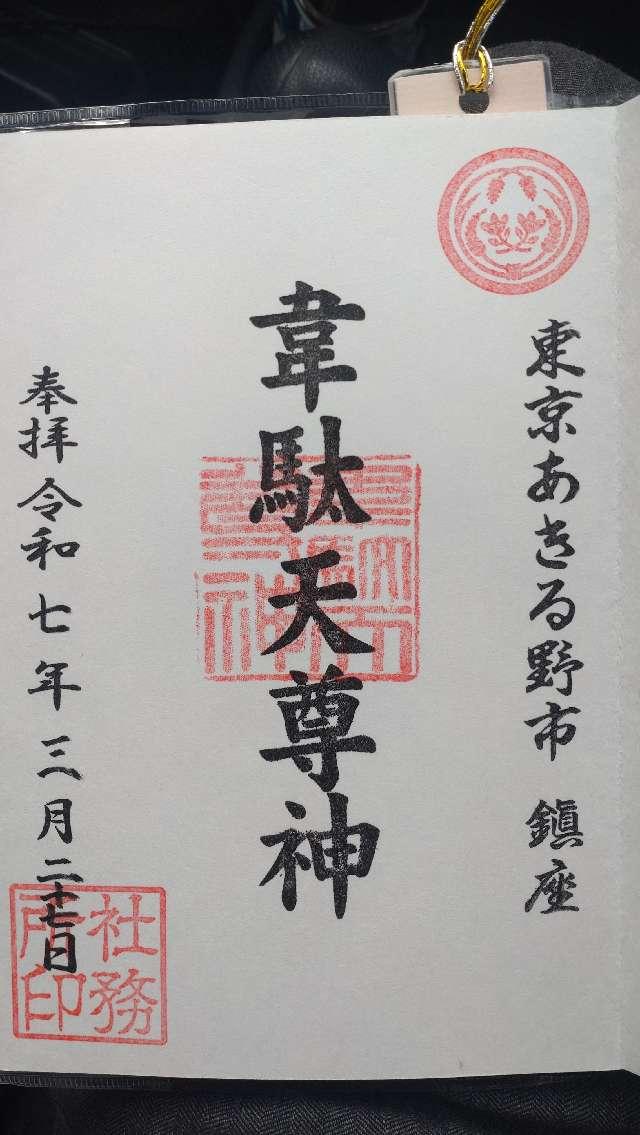 東京あきる野市 鎮座
韋駄天尊神
奉拝 令和七年三月二十七日
社務
所印